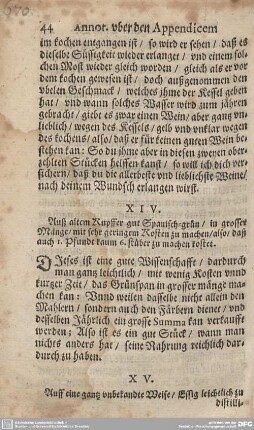 44 Annot. vber den Appendicem
im kochen entgangen ist / so wird er sehen / daß es
dieselbe Süssigkeit wieder erlanget / vnd einem sol-
chen Most wieder gleich worden / gleich als er vor
dem kochen gewesen ist / doch außgenommen den
vbelen Geschmack / welches ihme der Kessel geben
hat / vnd wann solches Wasser wird zum jähren
gebracht / giebt es zwar einen Wein / aber gantz vn-
lieblich / wegen des Kessels / gelb vnd vnklar wegen
des kochens / also / daß er für keinen guten Wein be-
stehen kan: So du ihme aber in diesen zweyen ober-
zehlten Stücken helffen kanst / so will ich dich ver-
sichern / daß du die allerbeste vnd lieblichste Weine /
nach deinem Wundsch erlangen wirst.
XIV.
Auß altem Kupffer gut Spanisch-grün / in grosser
Mänge / mit sehr geringem Kosten zu machen / also / daß
auch 1. Pfundt kaum 6. stüber zu machen kostet.
Dieses ist eine gute Wissenschafft / dardurch
man gantz leichtlich / mit wenig Kosten vnnd
kurtzer Zeit / das Grünspan in grosser mänge ma-
chen kan: Vnnd weilen dasselbe nicht allein den
Mahlern / sondern auch den Färbern dienet / vnd
desselben Jährlich ein grosse Summa kan verkaufft
werden: Also ist es ein gut Stück / wann man
nichts anders hat / seine Nahrung reichlich dar-
durch zu haben.
XV.
Auff eine gantz unbekandte Weise / Essig leichtlich zu
distilli-